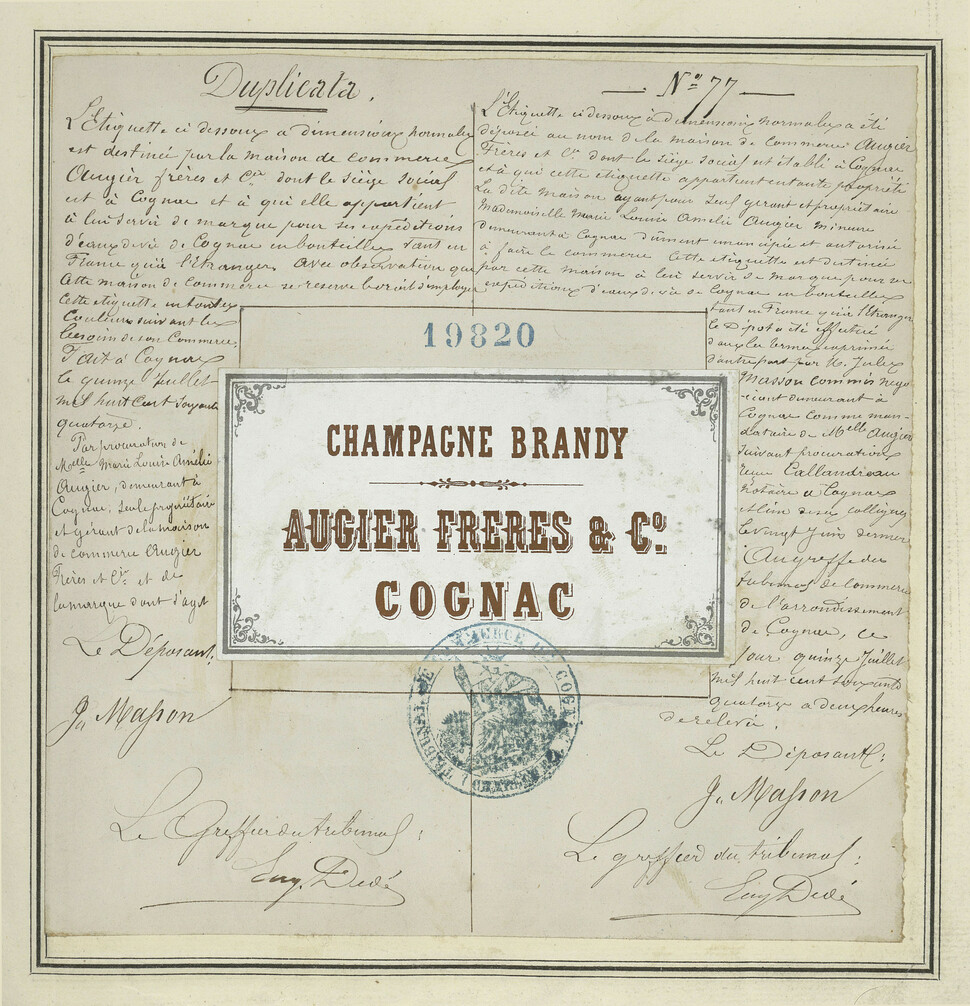 Duplicata.
L'Etiquette ci dessous à dimensions normales
est destinée par la maison de commerce
Augier frères et Cie dont le siège social
est à Cognac et à qui elle appartient
à lui servir de marque pour ses expéditions
d'eaux de vie de Cognac en bouteilles tant en
France qu'à l'étranger. Avec observation que
cette maison de commerce se reserve le droit d'employer
cette etiquette en toutes
couleurs suivant les
besoins de son commerce.
Fait à Cognac
le quinze Juillet
mil huit cent soixante
quatorze.
Par procuration de
Melle Marie Louise Amélie
Augier, demeurant à
Cognac, seule propriétaire
et gérant de la maison
de commerce Augier
Frères et Cie et de
la marque dont s'agit
Le Déposant:
J. Masson
Le Greffier du tribunal:
Eug. Dedé
No 77
L'Etiquette ci dessous à dimensions normales a été
déposée au nom de la maison de commerce Augier
Frères et Cie dont le siège social est établi à Cognac
et à qui cette etiquette appartient en toute propriété
La dite maison ayant pour seul gerant et propriétaire
Mademoiselle Marie Louise Amélie Augier mineure
demeurant à Cognac dûment emancipée et autorisée
à faire le commerce. Cette etiquette est destinée
par cette maison à lui servir de marque pour ses
expéditions d'eaux de vie de Cognac en bouteilles
tant en France qu'à l'étranger
le Dépot a été effectué
dans les termes exprimés
d'autre part par M. Jules
Masson commis nego
ciant demeurant à
Cognac comme man-
dataire de Melle Augier
suivant procuration
reçue Callandreau
notaire à Cognac
et l'un de ses collègues
le vingt Juin dernier
Au greffe du
tribunal de commerce
de l'arrondissement
de Cognac, ce
jour quinze Juillet
mil huit cent soixante
quatorze a deux heures
de relevée.
Le Déposant:
J. Masson
Le greffier du tribunal:
Eug Dedé
19820
CHAMPAGNE BRANDY
AUGIER FRERES & Co.
COGNAC
TRIBUNAL DE COMMERCE DE COGNAC